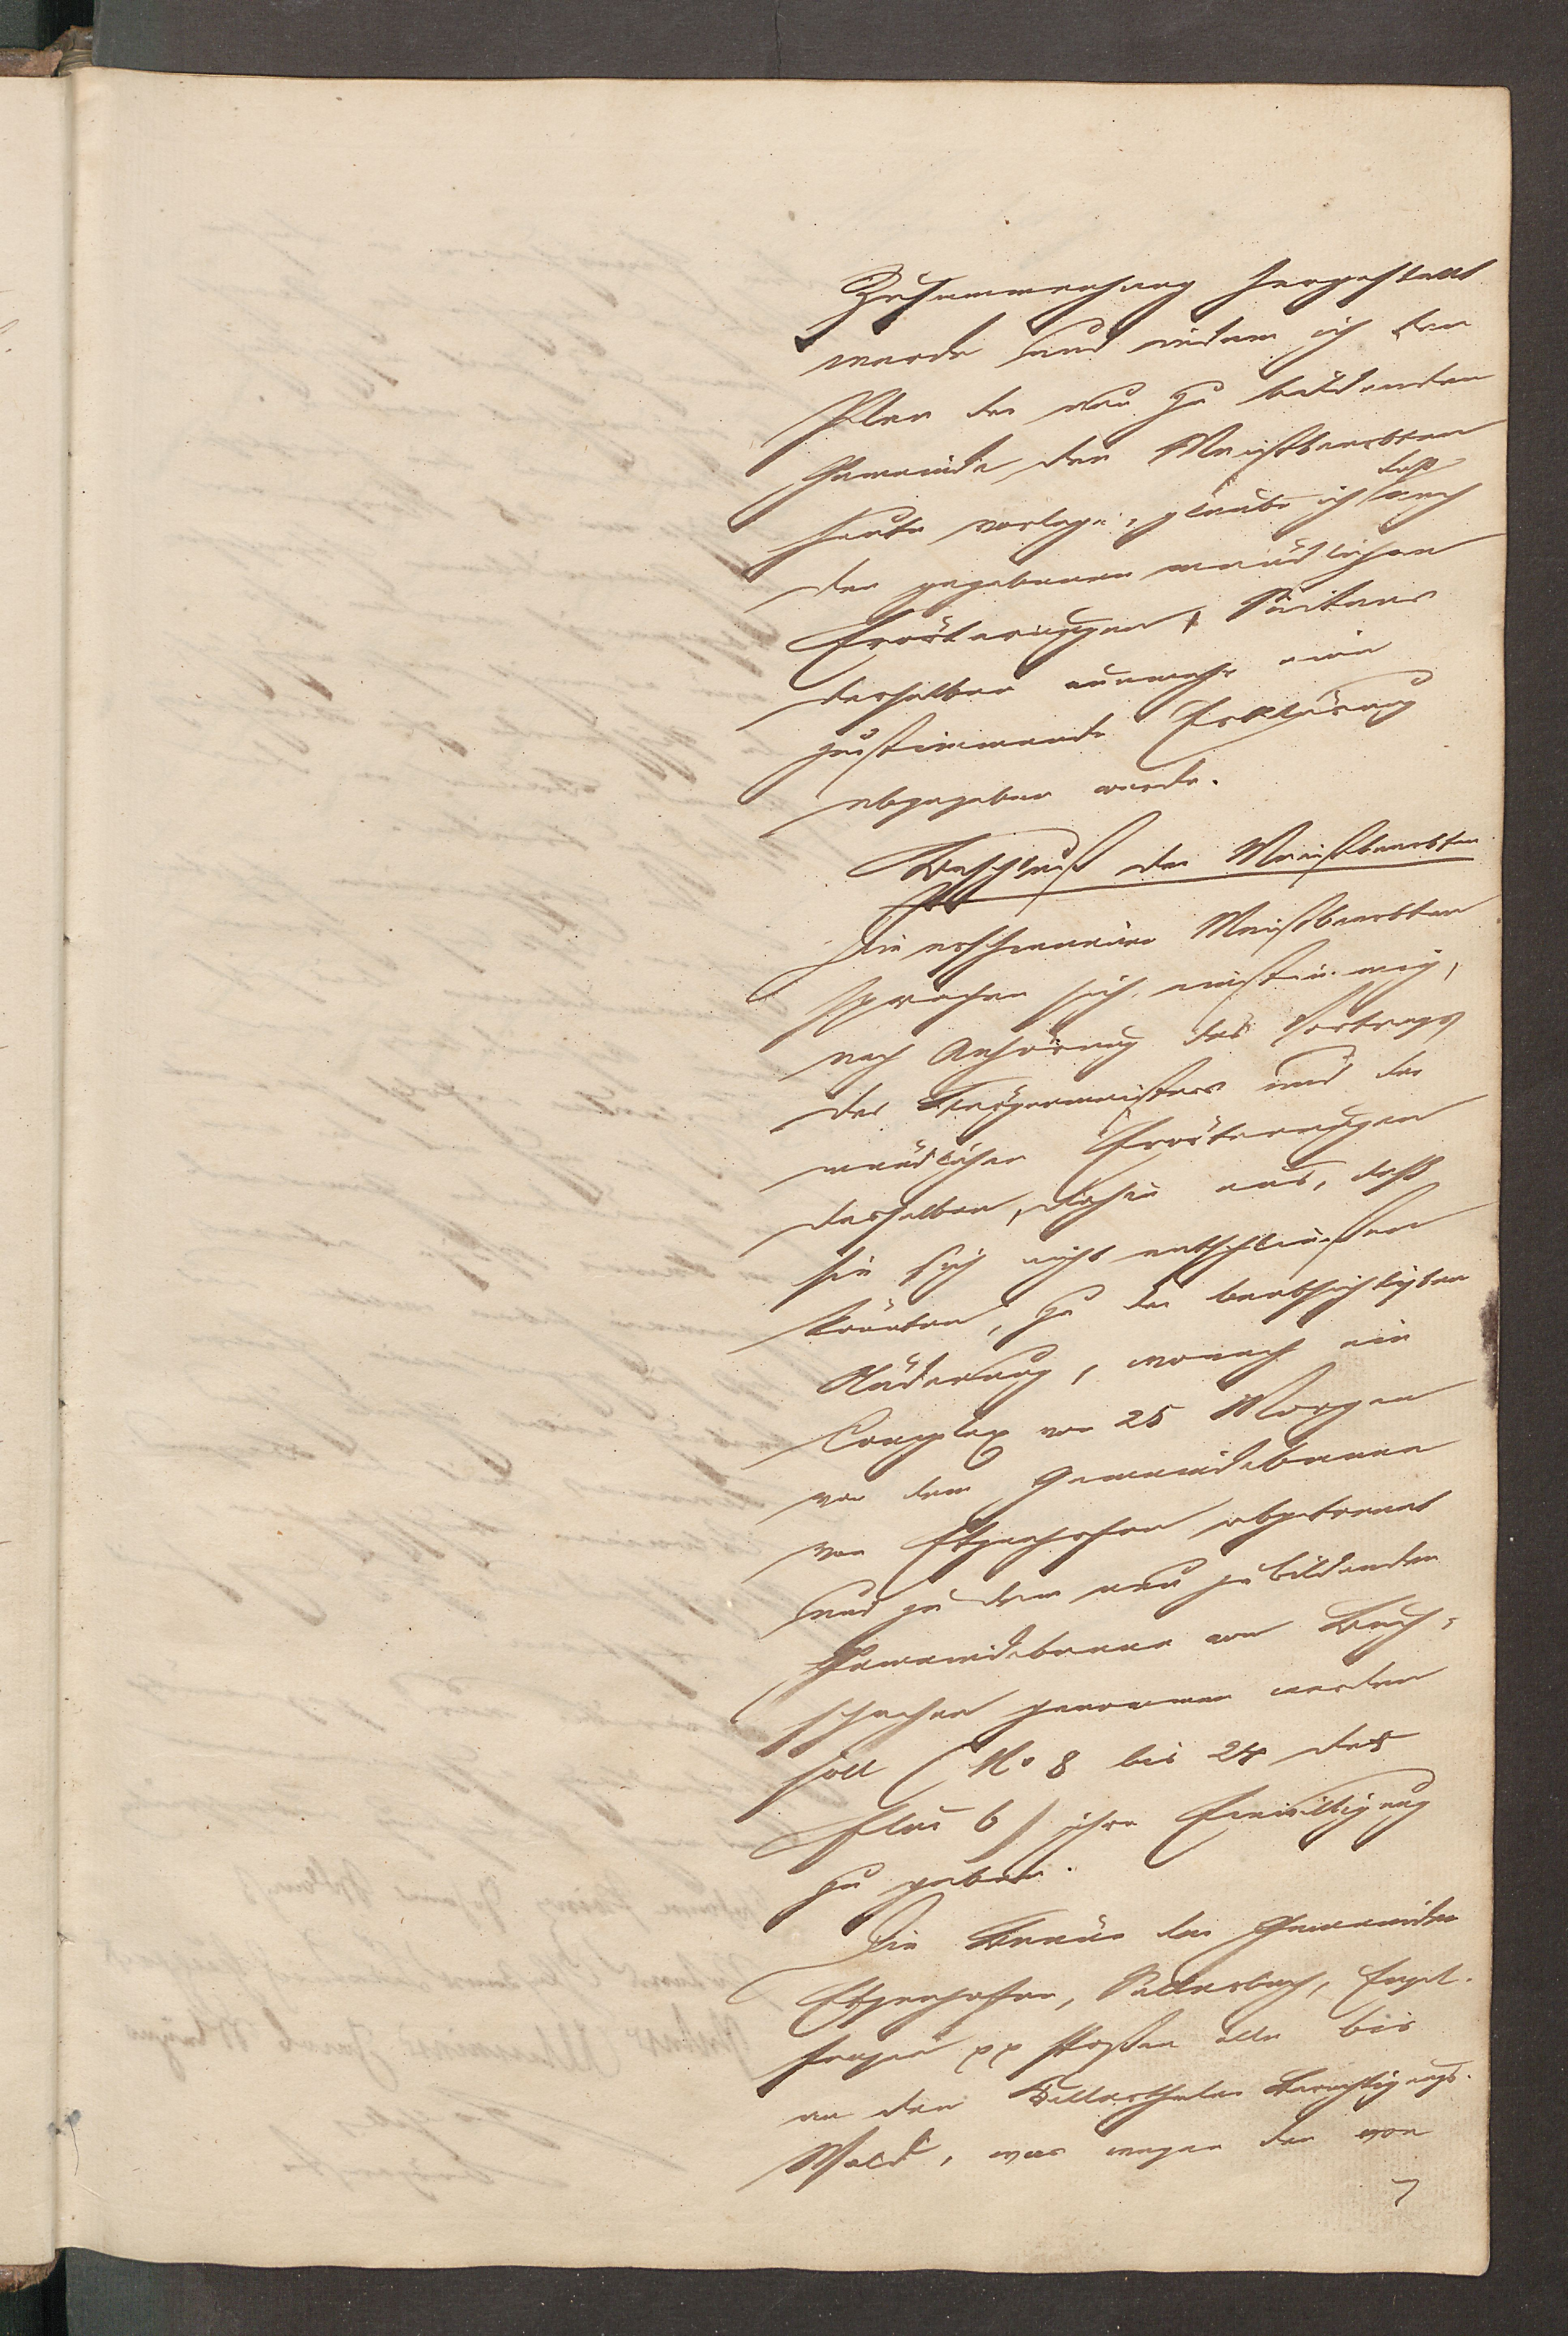 Zusammenhang hergestellt
werde und indem ich den
Plan der neu zu bildenden
Gemeinde den Meistbeerbten
heute vorlege, glaube ich daß nach
den gegebenen mündlichen
Erörterungen, Seitens
derselben nunmehr eine
zustimmende Erklärung
abgegeben werde.
Beschluß der Meistbeerbten
Die erschienenen Meistbeerbten
sprachen sich einstimmig,
nach Anhörung des Vortrags
des Bürgermeisters und der
mündlichen Erörterungen
desselben, dahin aus, daß
sie sich nicht entschließen
könnten, zu der beabsichtigten
Änderung, wonach ein
Complex von 25 Morgen
von dem Gemeindebanne
von Etzenhofen abgetrennt
und zu dem neu zu bildenden
Gemeindebanne von Buch-
schachen genommen werden
soll (No 8 bis 24 der
Flur 6) ihre Einwilligung
zu geben.
Die Bänne der Gemeinden
Etzenhofen, Sellerbach, Engel-
fangen pp stoßen alle bis
an den Köllerthaler Berechtigungs-
Wald, was wegen der von
7